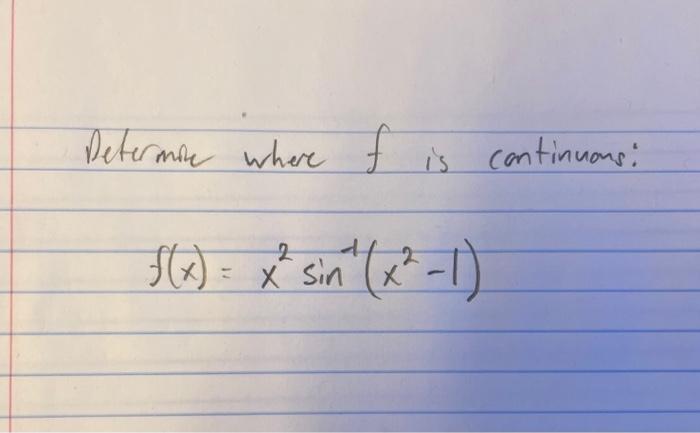 Determine where f is continuous:
f(x) = x² sin⁻¹(x² - 1)